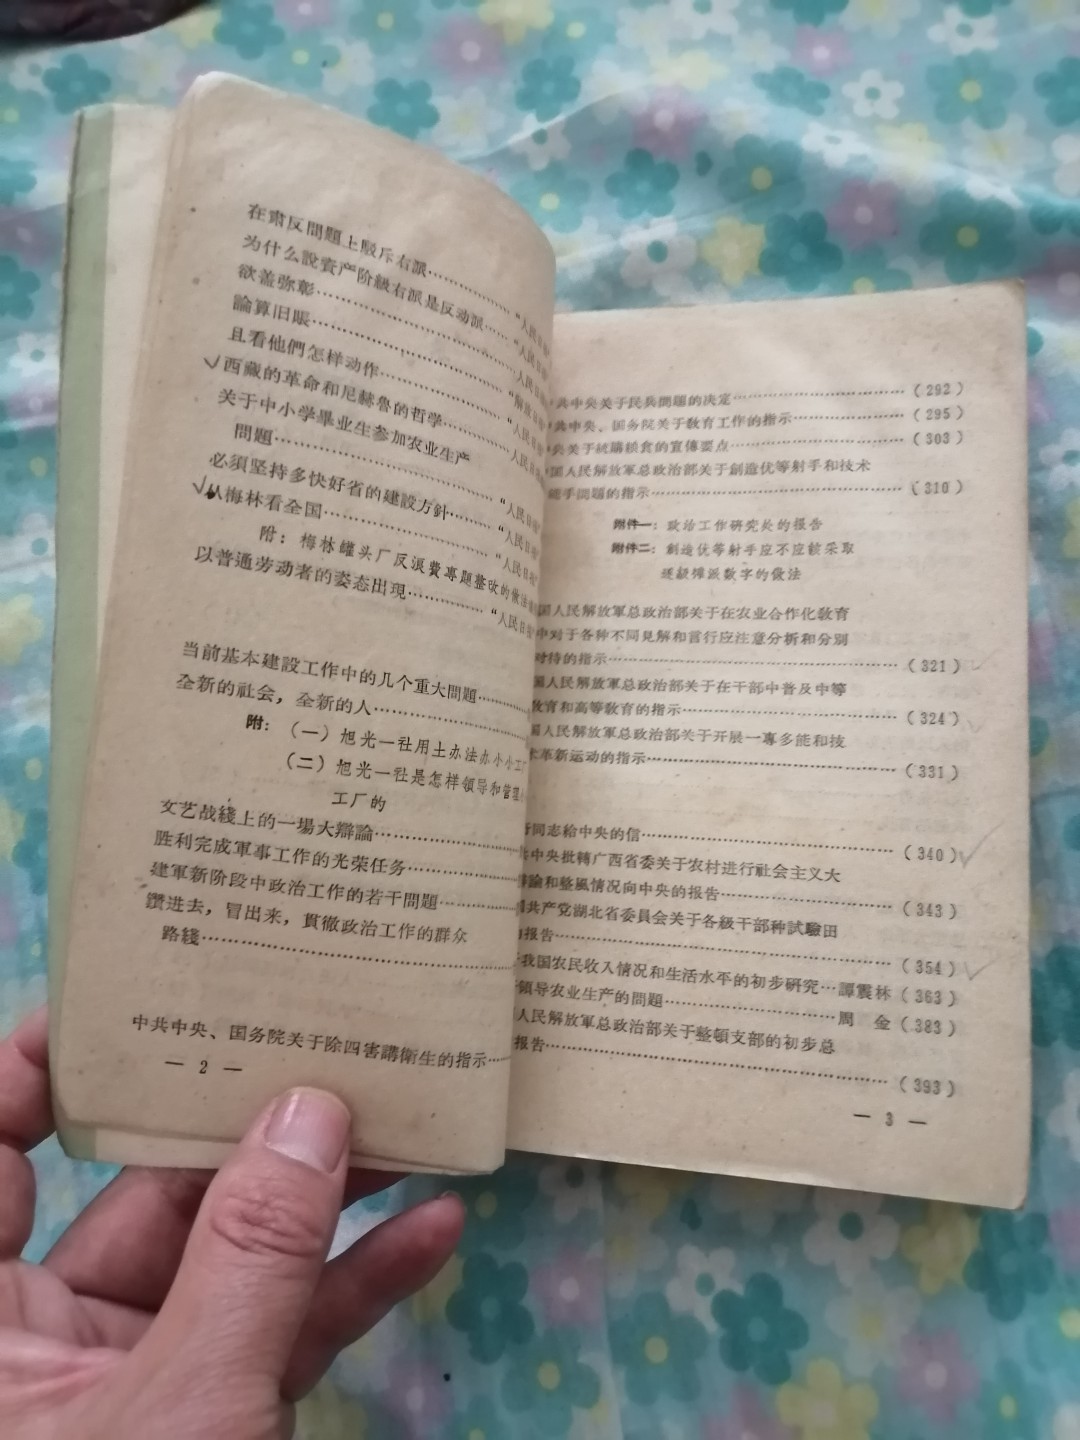 在肃反問題上駁斥右派……
为什么說資产阶級右派是反动派……“人民日报”
欲盖弥彰……“人民日
論算旧賬……“人民日
且看他們怎样动作……“解放日报
西藏的革命和尼赫魯的哲学……“人民日
关于中小学畢业生参加农业生产
問題……“人民日报”
必須坚持多快好省的建設方針……“人民日报
从梅林看全国……“人民日报
附：梅林罐头厂反浪費專題整改的做法
以普通劳动者的姿态出現……“人民日
当前基本建設工作中的几个重大問題……
全新的社会，全新的人……
附：（一）旭光一社用土办法办小小工
（二）旭光一社是怎样領导和管理
工厂的
文艺战綫上的一場大辯論……
胜利完成軍事工作的光荣任务……
建軍新阶段中政治工作的若干問題……
鑽进去，冒出来，貫徹政治工作的群众
路綫……
中共中央、国务院关于除四害講衛生的指示……
— 2 —
共中央关于民兵問題的决定……（292）
共中央、国务院关于教育工作的指示……（295）
央关于統購粮食的宣傳要点……（303）
国人民解放軍总政治部关于創造优等射手和技术
能手問題的指示……（310）
附件一：政治工作研究处的报告
附件二：創造优等射手应不应該采取
逐級攤派数字的做法
国人民解放軍总政治部关于在农业合作化教育
中对于各种不同見解和言行应注意分析和分別
对待的指示……（321）
国人民解放軍总政治部关于在干部中普及中等
教育和高等教育的指示……（324）
国人民解放軍总政治部关于开展一專多能和技
术革新运动的指示……（331）
同志給中央的信……（340）
共中央批轉广西省委关于农村进行社会主义大
辯論和整風情况向中央的报告……（343）
国共产党湖北省委員会关于各級干部种試驗田
报告……（354）
我国农民收入情况和生活水平的初步研究…譚震林（363）
領导农业生产的問題……周　金（383）
人民解放軍总政治部关于整頓支部的初步总
报告……（393）
— 3 —